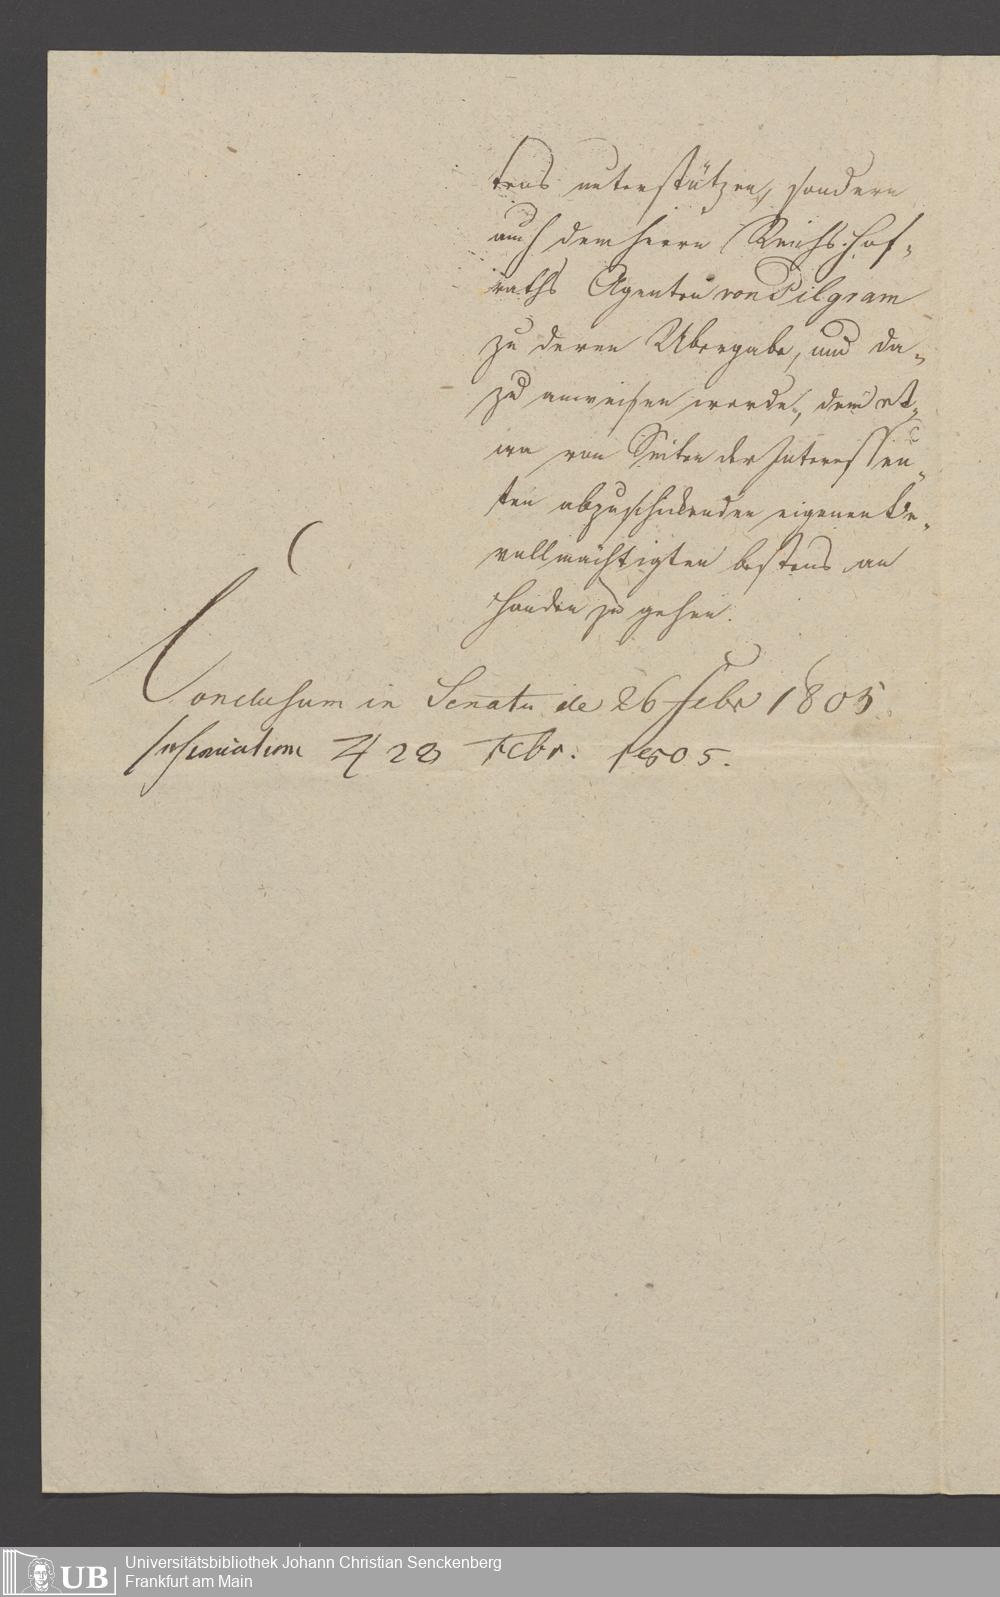 tens unterstützen, sondern
auch dem Herrn Reichs-Hof-
raths Agenten von Pilgram
zu deren Ubergabe, und da-
zu anweisen werde, dem et-
wa von Seiten der Interessen-
ten abzuschickenden eigenen Be-
vollmächtigten bestens an
Handen zu gehen.
Conclusum in Senatu de 26 Febr 1805.
28 Febr. 1805.
UB
Universitätsbibliothek Johann Christian Senckenberg
Frankfurt am Main